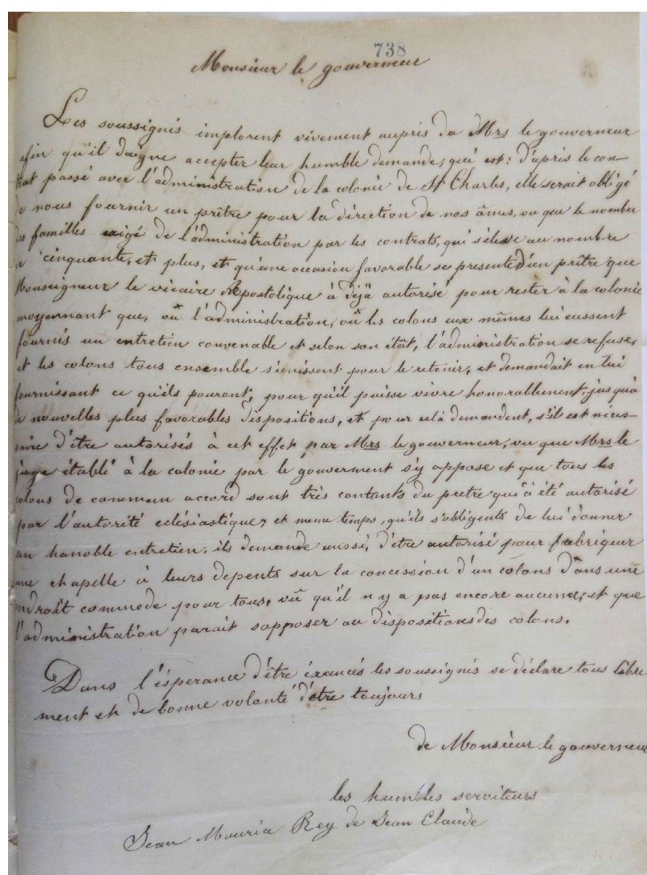 738
Monsieur le gouverneur
Les soussignés implorent vivement aupris du Mrs le gouverneur
afin qu'il daigne accepter leur humble demande, qui est: d'après le con-
trat passé avec l'administration de la colonie de St Charles, elle serait obligé
de nous fournir un prêtre pour la direction de nos âmes, vu que le nombre
des familles exigé de l'administration par les contrats, qui s'élève au nombre
de cinquante, et plus, et qu'une occasion favorable se presente d'un prêtre que
Monseigneur le vicaire Apostolique à dèjà autorisé pour rester à la colonie
moyennant que, où l'administration, où les colons eux mêmes lui eussent
fournis un entretien convenable et selon son état, l'administration se refuse,
et les colons tous ensemble s'unissent pour le retenir, et demandait en lui
fournissant ce qu'ils pouront, pour qu'il puisse vivre honorablement, jusqu'à
de nouvelles plus favorables dispositions, et pour celà demandent, s'il est neces-
saire d'être autorisés à cet effet par Mrs. le gouverneur, vu que Mrs le
juge établé à la colonie par le gouverment s'y appose et que tous les
colons de commun accord sont très contants du pretre qui à été autorisé
par l'autorité eclèsiastique, et meme temps, qu'ils s'obligents de lui donner
un honoble entretien, ils demande aussi, d'être autorisé pour fabriquer
une chapelle à leurs depents sur la concession d'un colons dans une
endroit commode pour tous, vû qu'il n'y a pas encore aucune, et que
l'administration parait s'opposer au dispositions des colons.
Dans l'ésperance d'être éxaucés les soussignés se déclare tous libre-
ment et de bonne volonté d'être toujours
de Monsieur le gouverneur
les humbles serviteurs
Jean Mauria Rey de Jean Claude